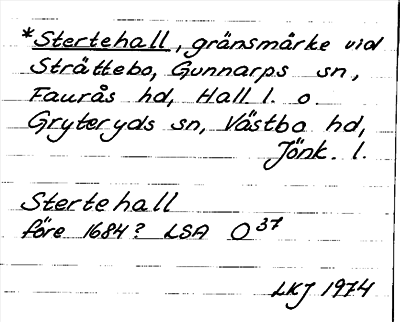 *Stertehall, gränsmärke vid
Strättebo, Gunnarps sn,
Faurås hd, Hall. l. o.
Gryteryds sn, Västbo hd,
Jönk. l.
Stertehall
före 1684? LSA O37
LKJ 1974